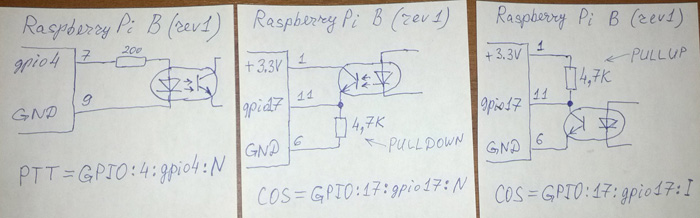 Raspberry Pi B (rev1)
gpio4
7
200
9
GND
PTT = GPIO:4:gpio4:N
Raspberry Pi B (rev1)
+3.3V
1
gpio17
11
4,7K
GND
6
PULLDOWN
COS = GPIO:17:gpio17:N
Raspberry Pi B (rev1)
+3.3V
1
PULLUP
4,7K
gpio17
11
GND
6
COS = GPIO:17:gpio17:I